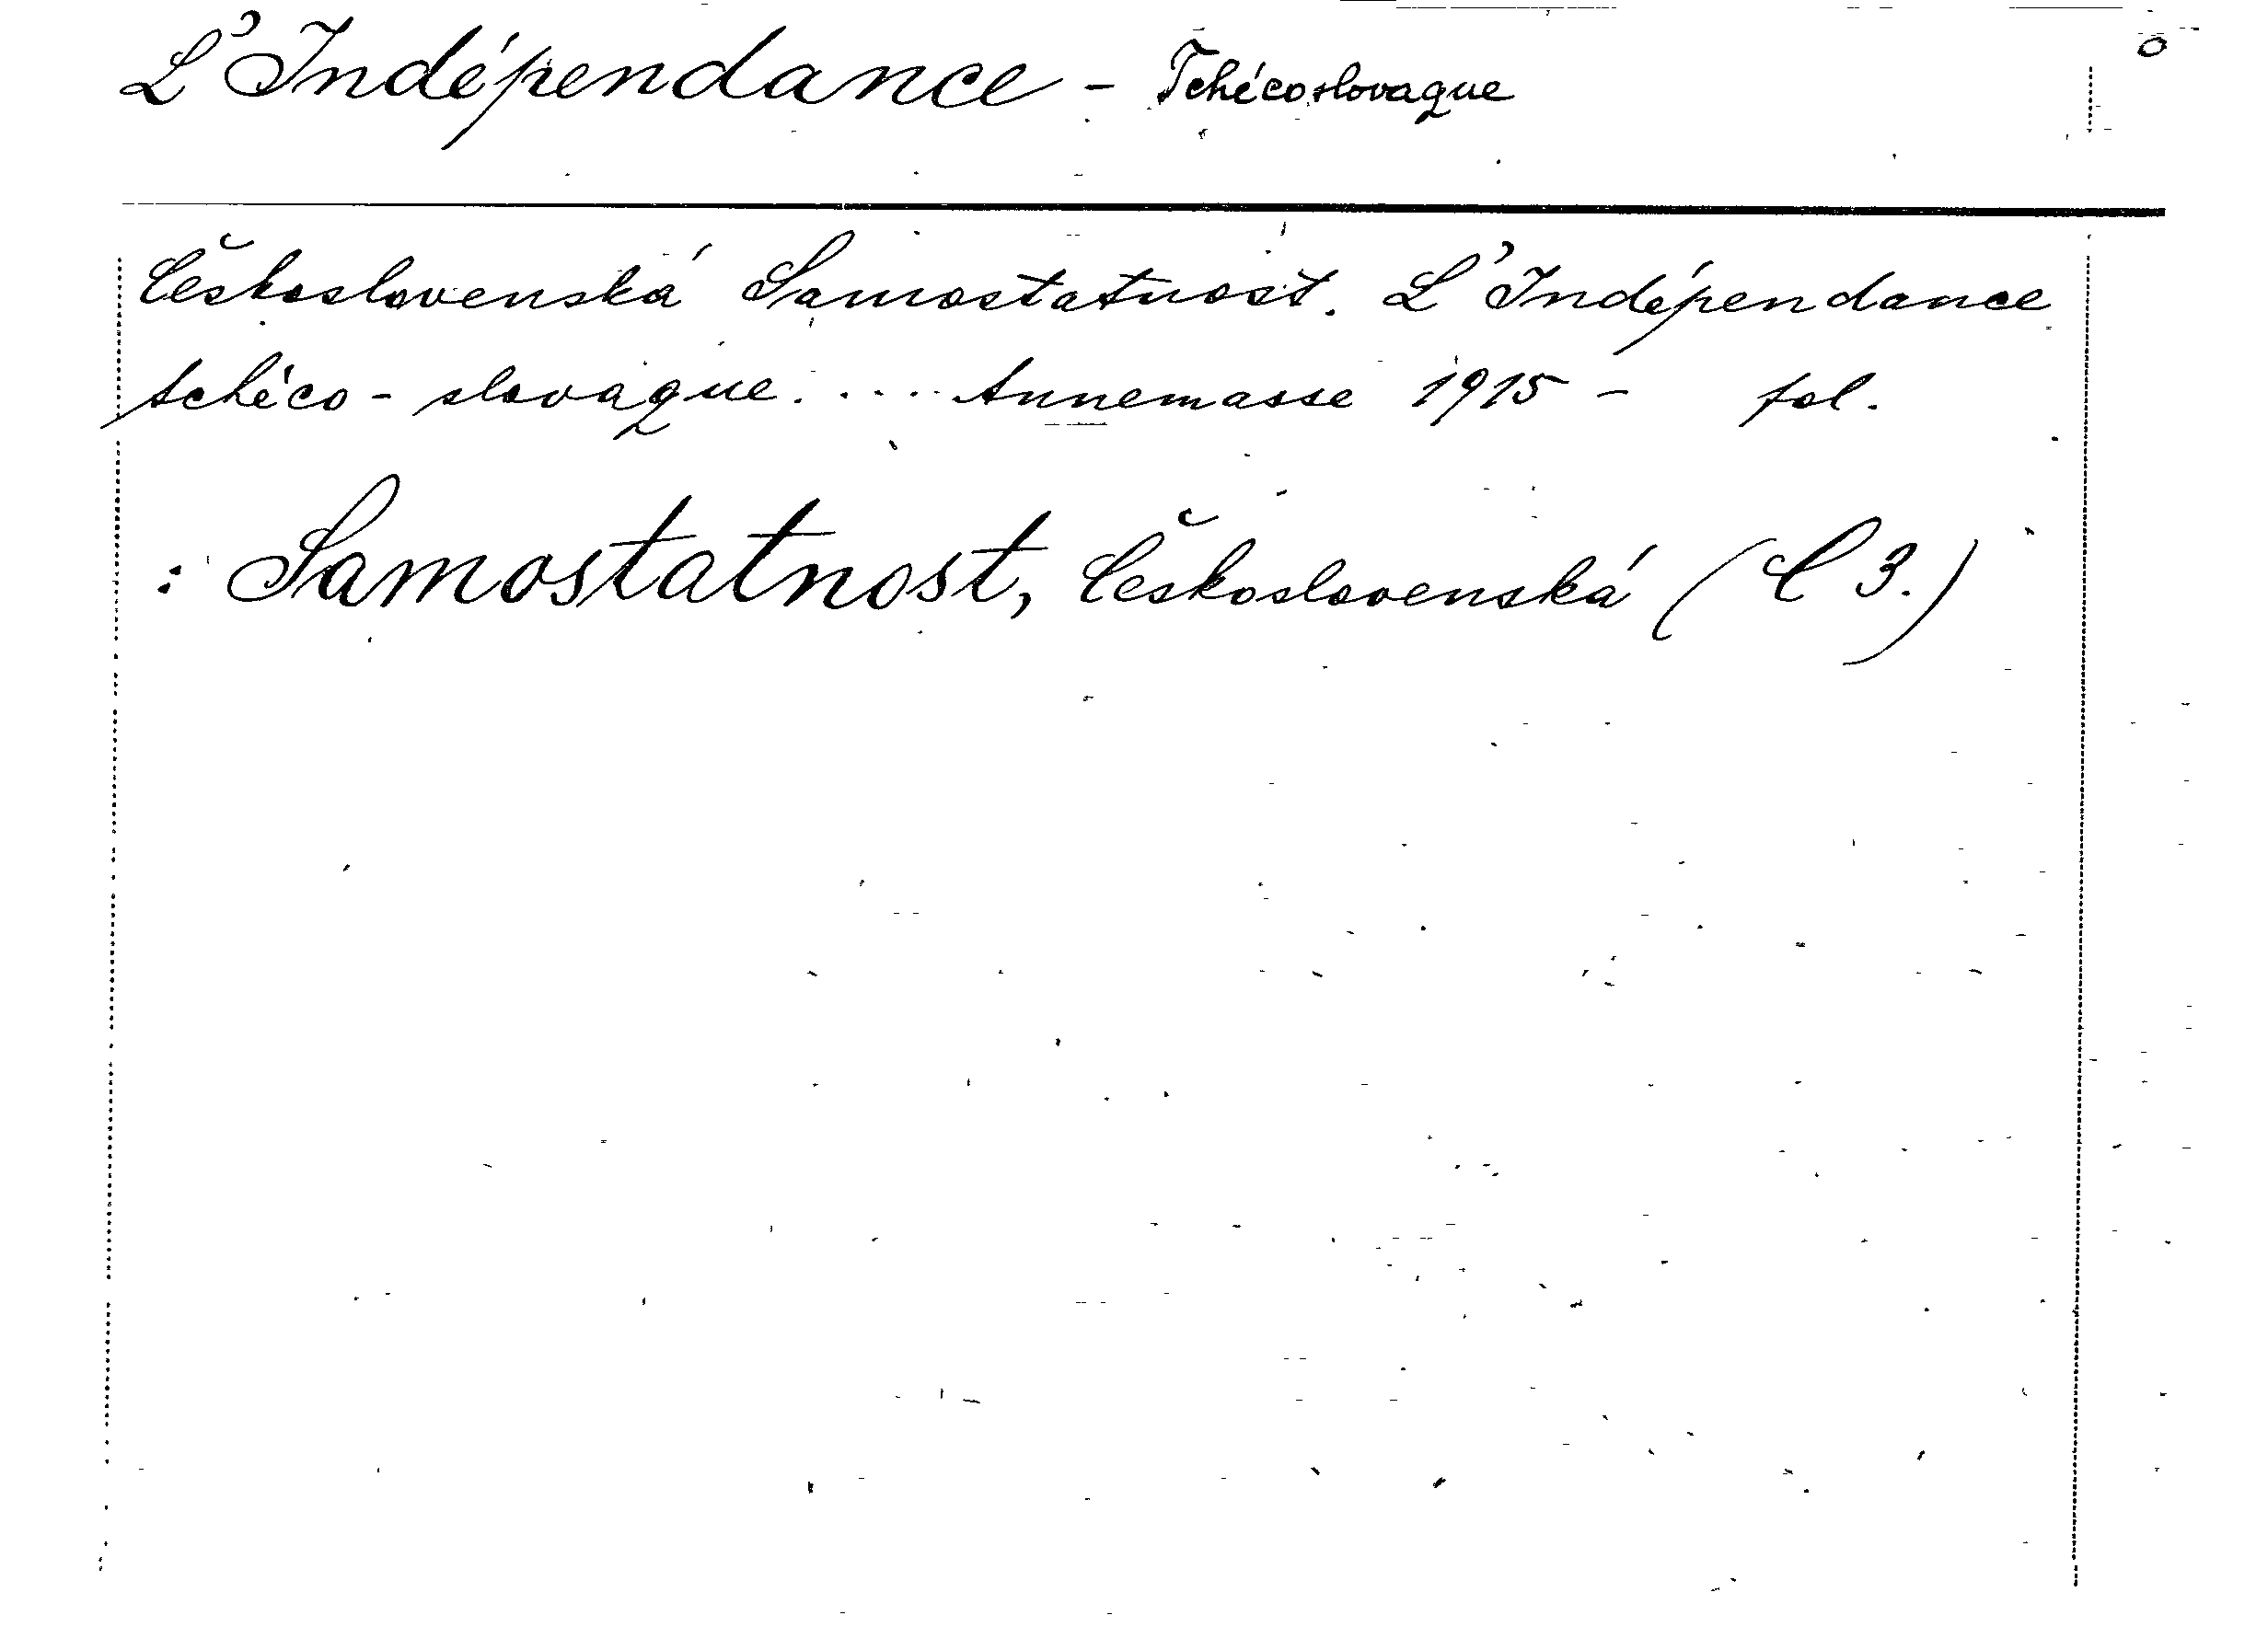 L'Indépendance - Tchécoslovaque
Československá Samostatnost. L'Indépendance
tchéco-slovaque..... Annemasse 1915 - fol.
: Samostatnost, Československá (C 3.)